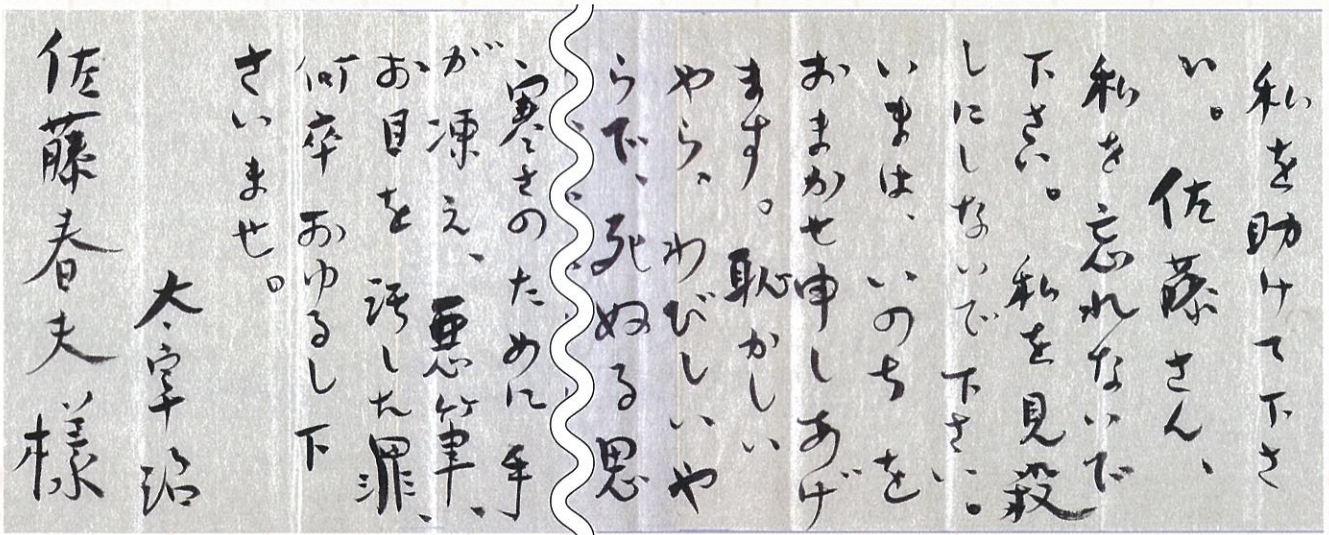 私を助けて下さ
い。佐藤さん、
私を忘れないで
下さい。私を見殺
しにしないで下さい。
いまは、いのちを
おまかせ申しあげ
ます。恥かしい
やら、わびしいや
らで、死ぬる思
寒さのために手
が凍え、悪筆、
お目を汚した罪、
何卒おゆるし下
さいませ。
太宰治
佐藤春夫様